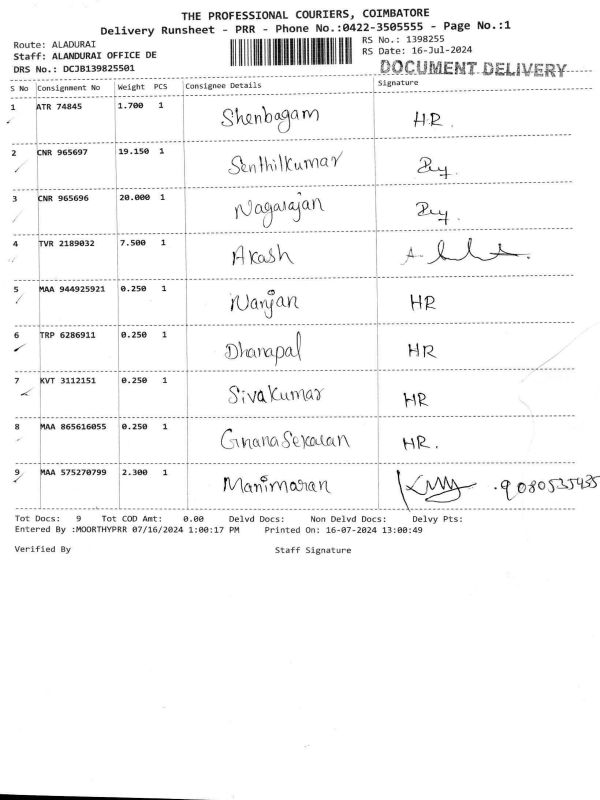 THE PROFESSIONAL COURIERS, COIMBATORE
Delivery Runsheet - PRR - Phone No.:0422-3505555 - Page No.:1
Route: ALADURAI RS No.: 1398255
Staff: ALANDURAI OFFICE DE RS Date: 16-Jul-2024
DRS No.: DCJB139825501 DOCUMENT DELIVERY
S No Consignment No Weight PCS Consignee Details Signature
1 ATR 74845 1.700 1 Shenbagam HR.
2 CNR 965697 19.150 1 Senthilkumar
3 CNR 965696 20.000 1 Nagarajan
4 TVR 2189032 7.500 1 Akash
5 MAA 944925921 0.250 1 Nanjan HR
6 TRP 6286911 0.250 1 Dhanapal HR
7 KVT 3112151 0.250 1 Sivakumar HR
8 MAA 865616055 0.250 1 Gnanasekaran HR.
9 MAA 575270799 2.300 1 Manimaran .9080535435
Tot Docs: 9 Tot COD Amt: 0.00 Delvd Docs: Non Delvd Docs: Delvy Pts:
Entered By :MOORTHYPRR 07/16/2024 1:00:17 PM Printed On: 16-07-2024 13:00:49
Verified By Staff Signature